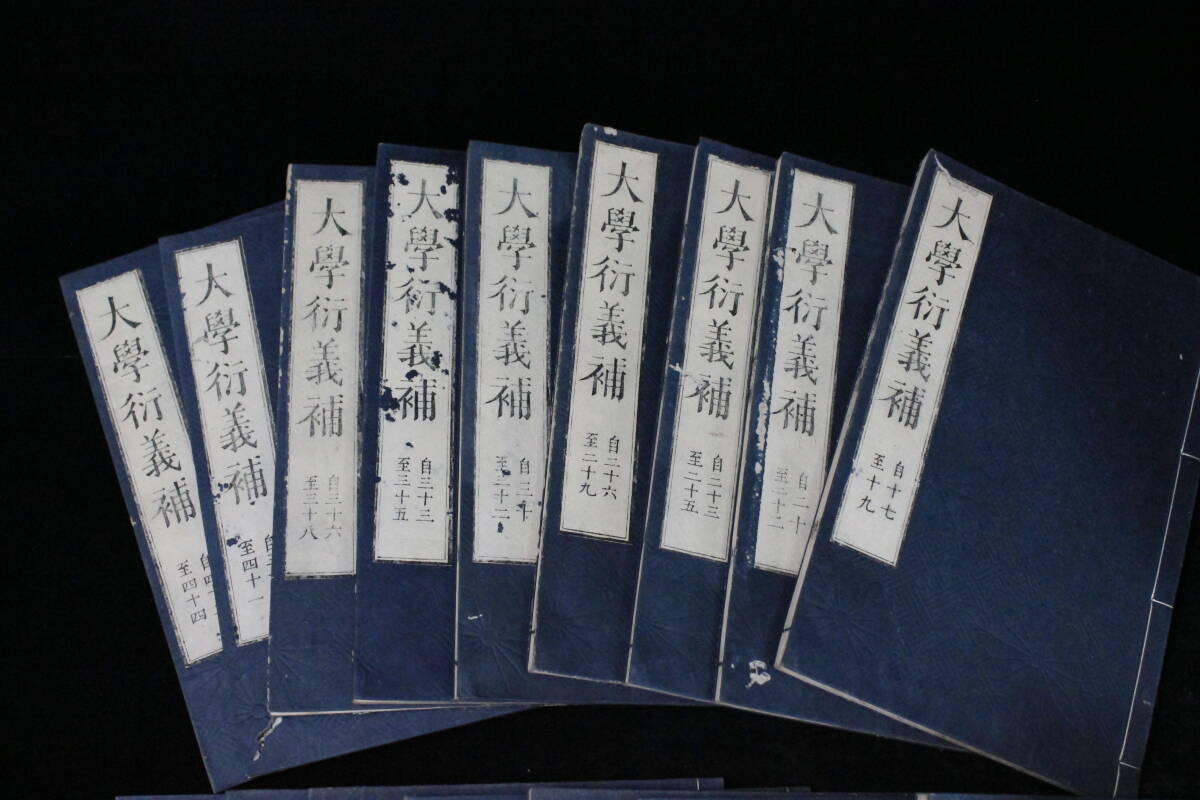 大學衍義補
自十七
至十九
大學衍義補
自二十
至二十二
大學衍義補
自二十三
至二十五
大學衍義補
自二十六
至二十九
大學衍義補
自三十
至三十二
大學衍義補
自三十三
至三十五
大學衍義補
自三十六
至三十八
大學衍義補
自
至四十一
大學衍義補
自四
至四十四